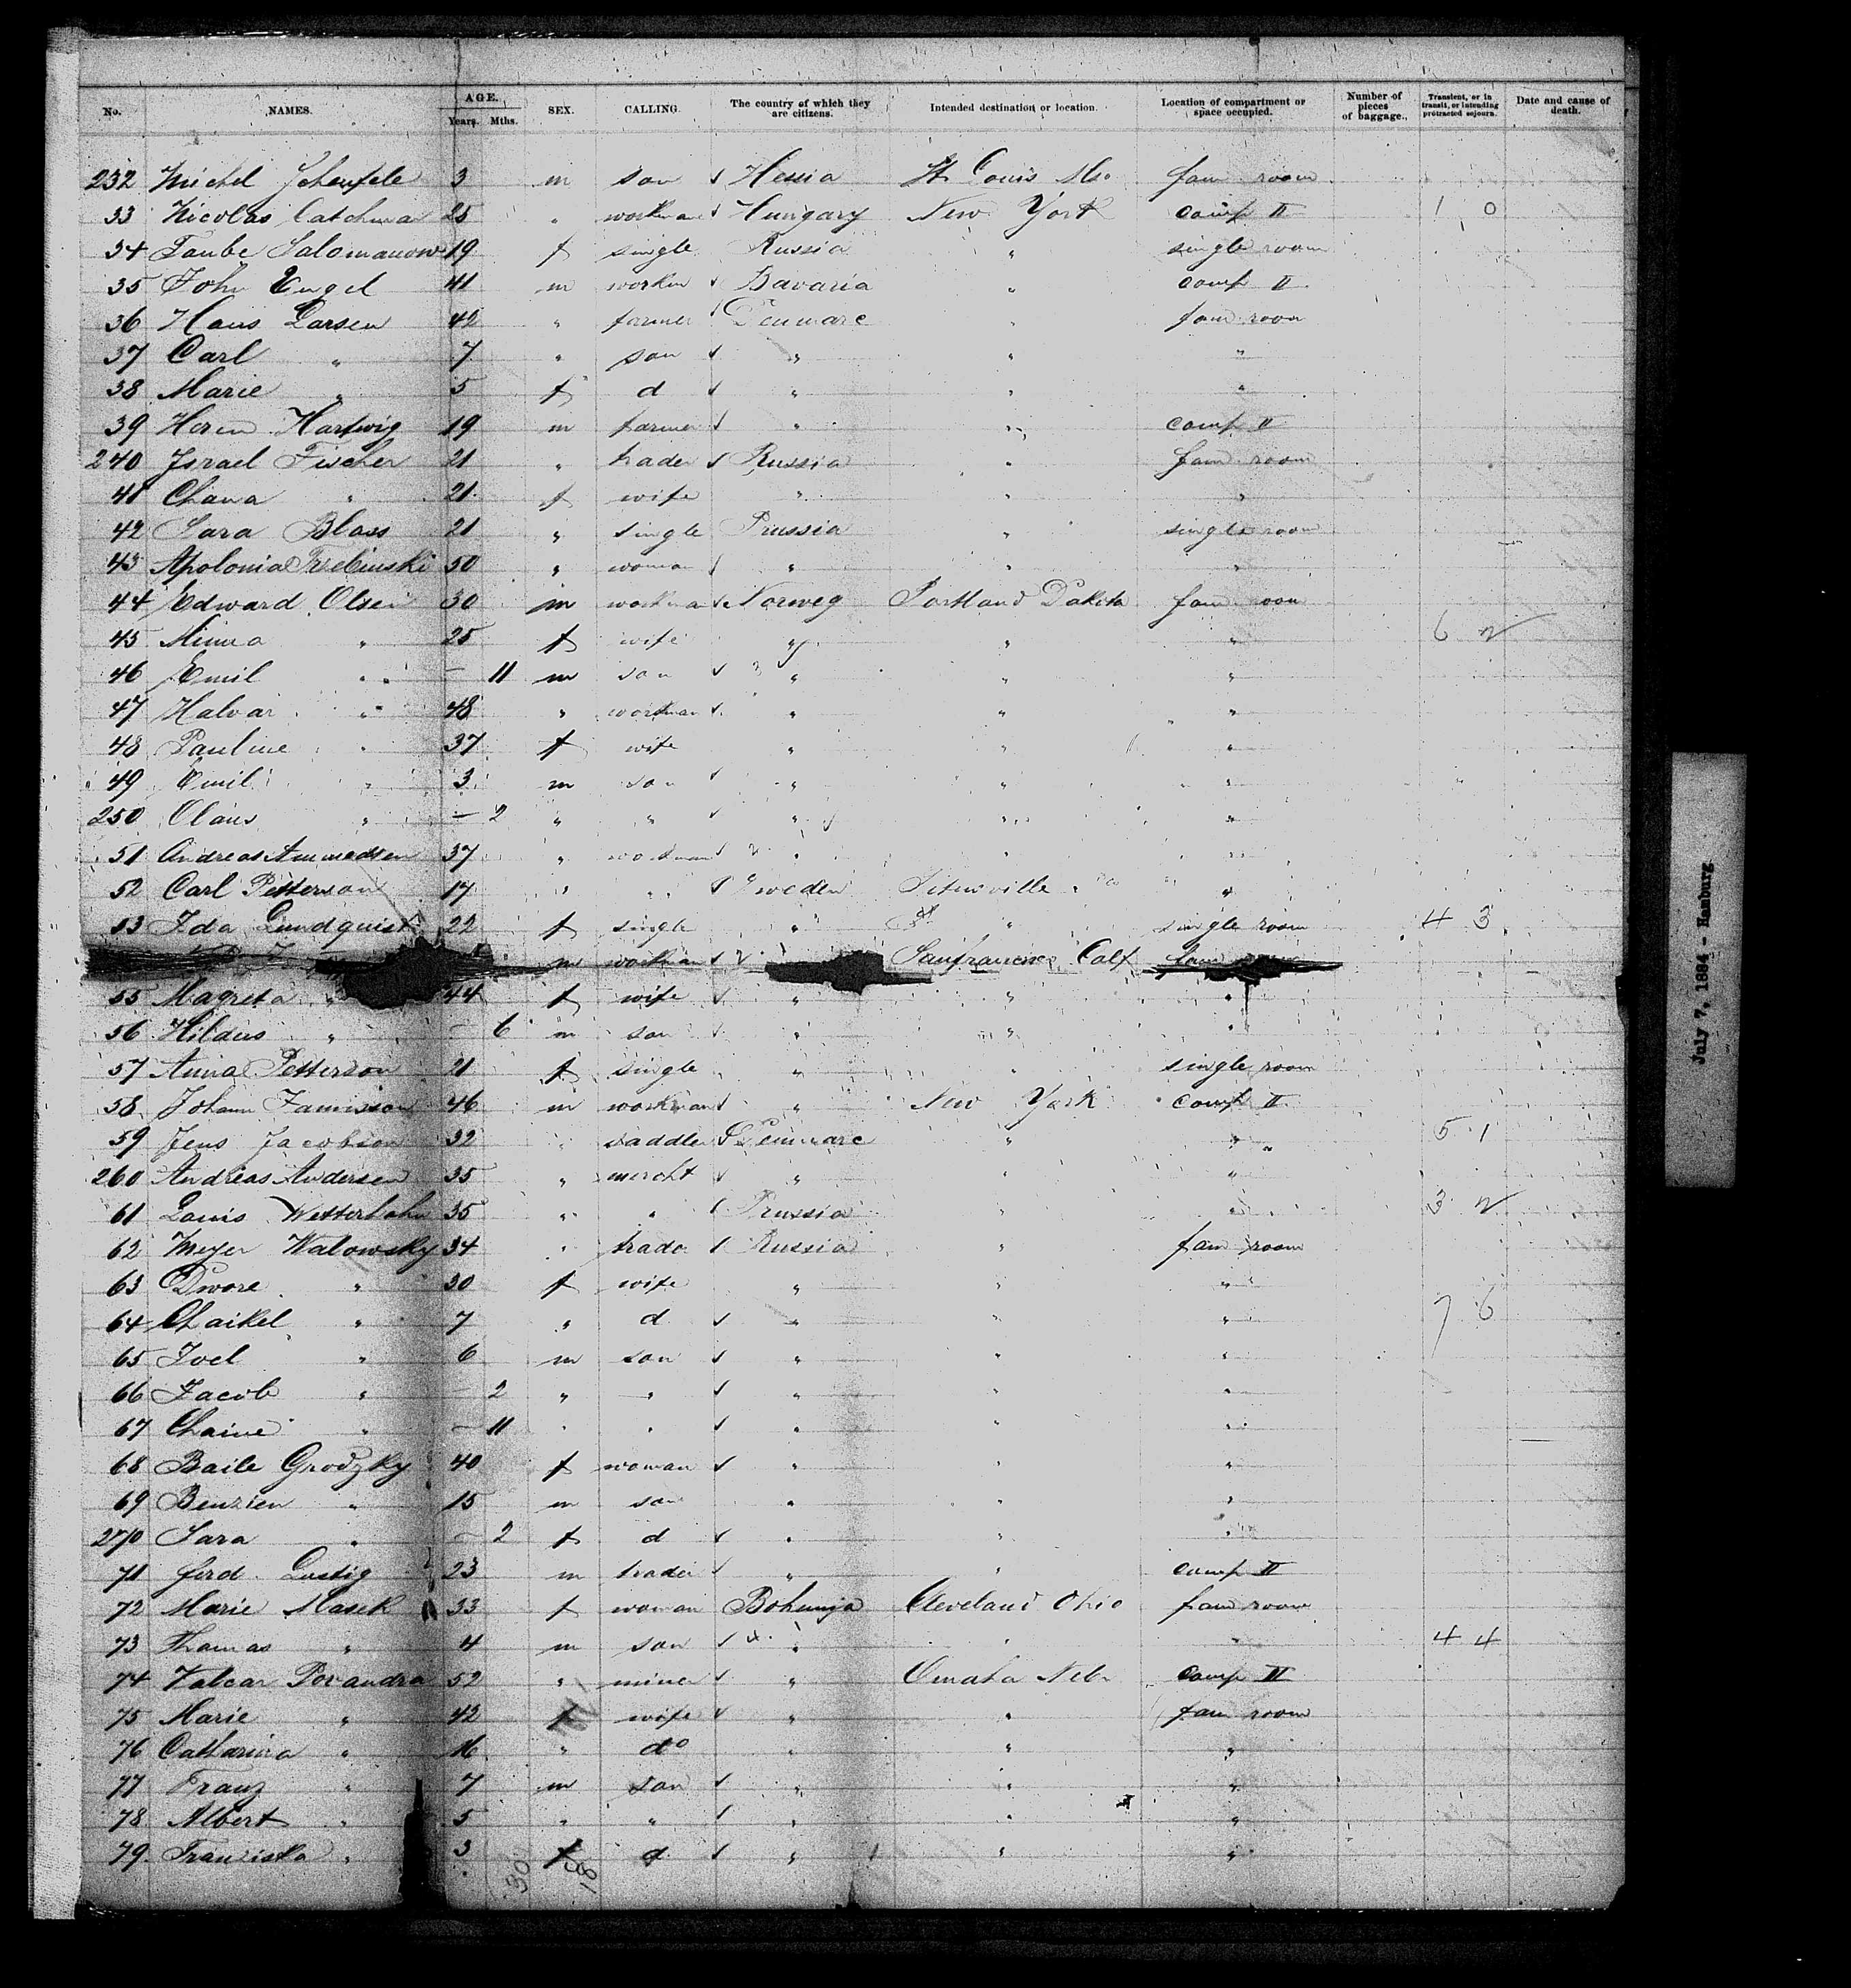 No. NAMES. AGE. Years. Mths. SEX. CALLING. The country of which they are citizens. Intended destination or location. Location of compartment or space occupied. Number of pieces of baggage. Transient, or in transit, or intending protracted sojourn. Date and cause of death.
232 Michel Scheufele 3 m son Hessia St Louis Mo. fam room
33 Nicolas 25 " workman Hungary New York comp II 1 0
34 Taube Salomanow 19 f single Russia " single room
35 John Engel 41 m workm Bavaria " comp II
36 Hans Larsen 42 " farmer Denmarc " fam room
37 Carl " 7 " son " " "
38 Marie " 5 f d " " "
39 Herm Hartwig 19 m farmer " " comp II
240 Israel Fischer 21 " trader Russia " fam room
41 Chana " 21 f wife " " "
42 Sara Blass 21 " single Prussia " single room
43 Apolonia 50 " woman " " "
44 Edward Olsen 30 m workman Norweg Portland Dakota fam room
45 Minna " 25 f wife " " " 6 2
46 Emil " - 11 m son " " "
47 Halvar " 48 " workman " " "
48 Pauline " 37 f wife " " "
49 Emil " 3 m son " " "
250 Olaus " - 2 " " " " "
51 Andreas Ammedsen 37 " workman " " "
52 Carl Petterson 17 " " Sweden Titusville "
53 Ida Lundquist 22 f single " " single room 4 3
m workman Sanfrancisco Calf fam
55 Magreta " 44 f wife " " "
56 Hildus " - 6 m son " " "
57 Anna Petterson 21 f single " " single room
58 Johann 46 m workman " New York comp II
59 Jens Jacobson 32 " saddler Denmarc " " 5 1
260 Andreas Andersen 35 " mercht " " "
61 Louis Wetterhahn 35 " " Prussia " " 3 2
62 Meyer Walowsky 34 " trader Russia " fam room
63 Dwore " 30 f wife " " "
64 Chaikel " 7 " d " " " 7 6
65 Joel " 6 m son " " "
66 Jacob " - 2 " " " " "
67 Chaine " - 11 " " " " "
68 Baile Grodzky 40 f woman " " "
69 Benzien " 15 m son " " "
270 Sara " - 2 f d " " "
71 Ferd. Lustig 23 m trader " " comp II
72 Marie Masek 33 f woman Bohemja Cleveland Ohio fam room
73 Thomas " 4 m son " " " 4 4
74 Povandra 52 " miner " Omaha Nebr comp II
75 Marie " 42 f wife " " fam room
76 Catharina " 16 " do " " "
77 Franz " 7 m son " " "
78 Albert " 5 " " " " "
79 Franziska " 3 f d " " "
30 18
July 7, 1884 - Hamburg